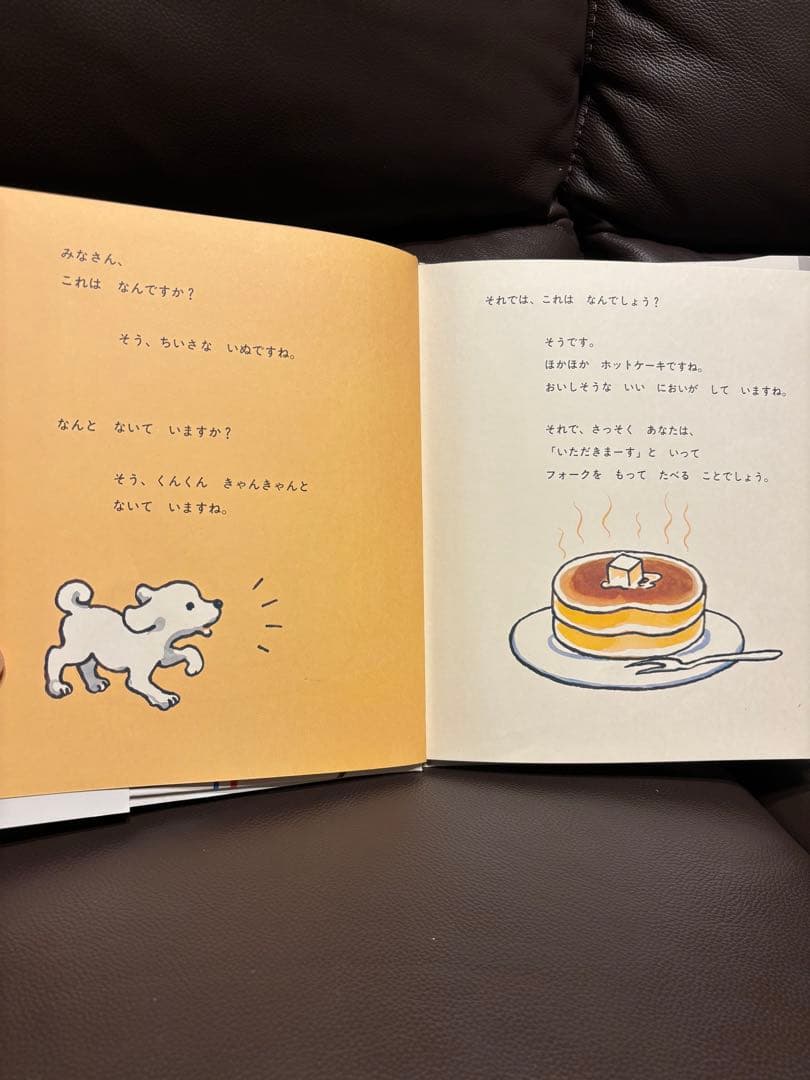 みなさん、
これは　なんですか？
そう、ちいさな　いぬですね。
なんと　ないて　いますか？
そう、くんくん　きゃんきゃんと
ないて　いますね。
それでは、これは　なんでしょう？
そうです。
ほかほか　ホットケーキですね。
おいしそうな　いい　においが　して　いますね。
それで、さっそく　あなたは、
「いただきまーす」と　いって
フォークを　もって　たべる　ことでしょう。